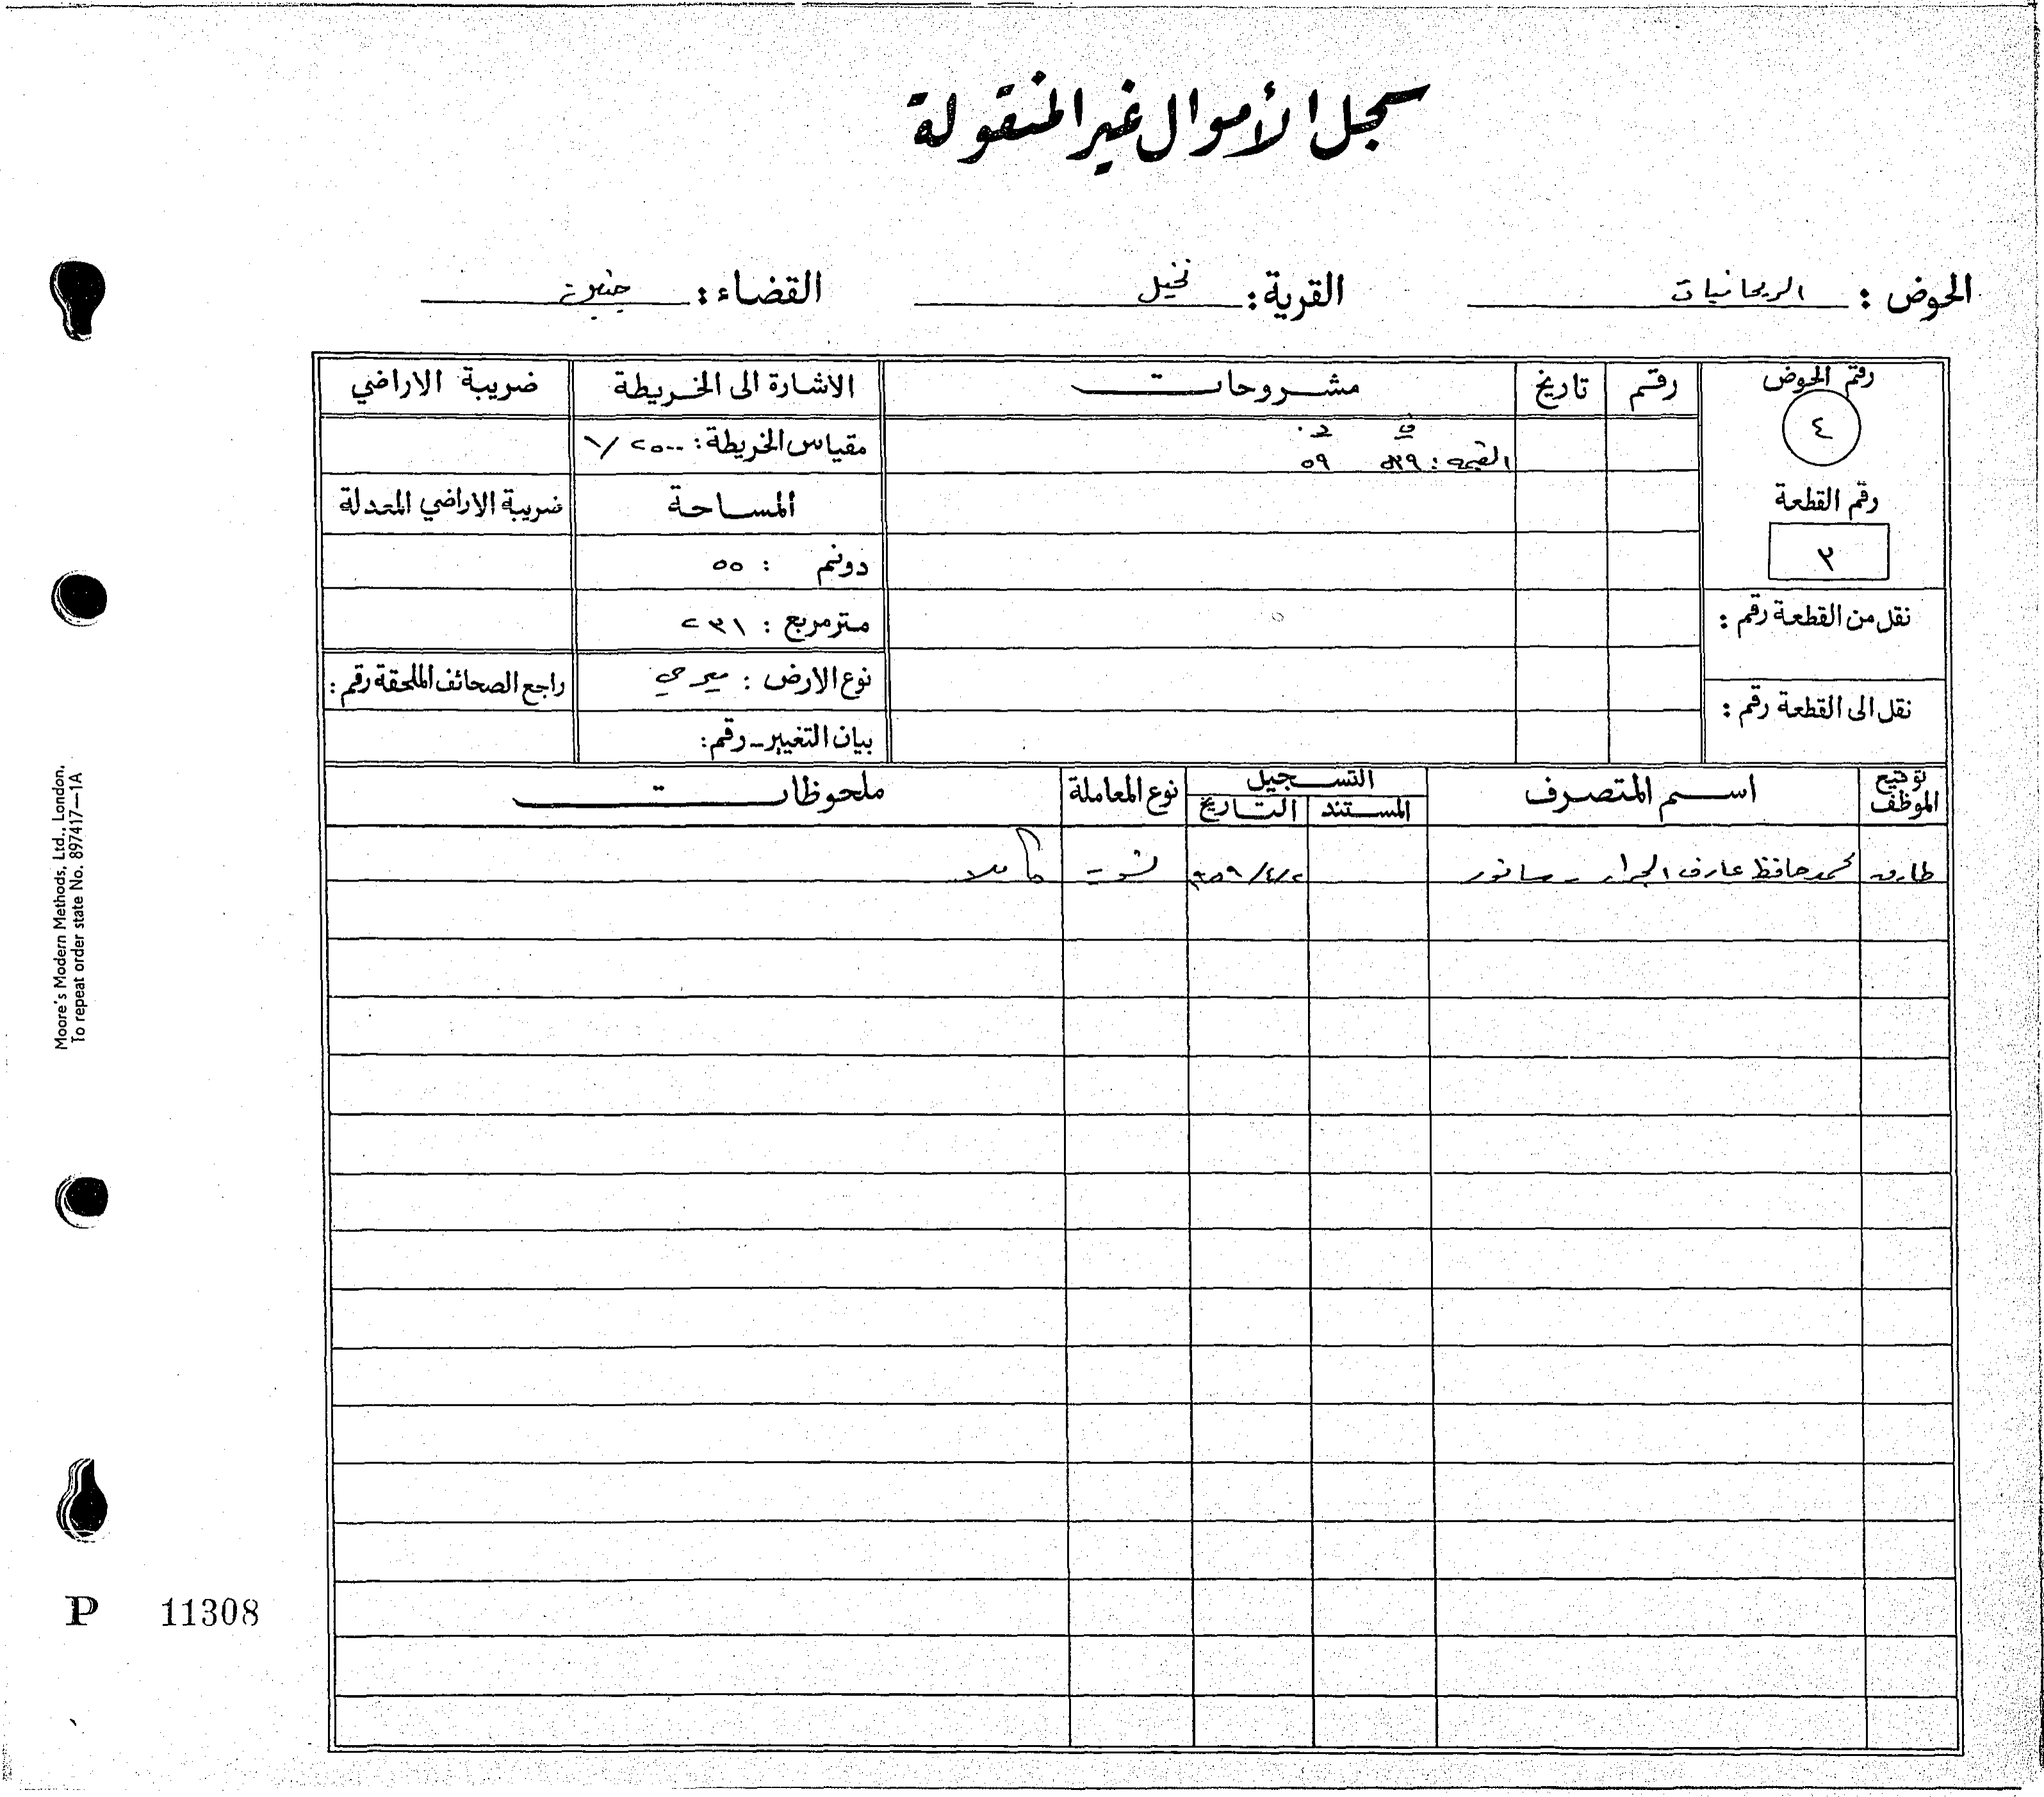 سجل الأموال غير المنقولة
الحوض : الريحانيات القرية : نخيل القضاء : جنين
رقم الحوض رقم تاريخ مشروحات الاشارة الى الخريطة ضريبة الاراضي
٤
ف د.
القيمة : ٥٣٩ ٥٩
مقياس الخريطة : ١/٢٥٠٠
رقم القطعة
٣
المساحة ضريبة الاراضي المعدلة
دونم : ٥٥
نقل من القطعة رقم :
متر مربع : ٢٣١
نوع الارض : ميري راجع الصحائف الملحقة رقم :
نقل الى القطعة رقم :
بيان التغيير - رقم :
توقيع الموظف اسم المتصرف التسجيل نوع المعاملة ملحوظات
المستند التاريخ
طارق محمد حافظ عارف الجرار - سانور ٩٥٩/٤/٢ تسوية كاملا
Moore's Modern Methods, Ltd., London.
To repeat order state No. 897417—1A
P 11308